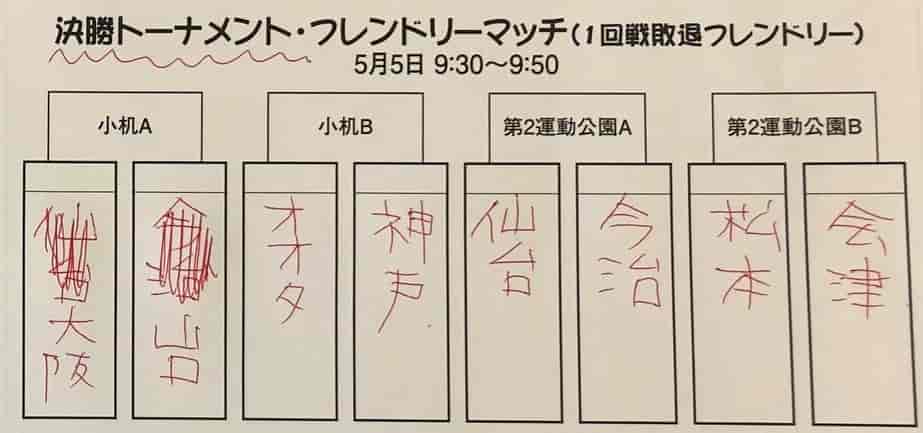 決勝トーナメント・フレンドリーマッチ(1回戦敗退フレンドリー)
5月5日 9:30～9:50
小机A
小机B
第2運動公園A
第2運動公園B
大阪
山口
オオタ
神戸
仙台
今治
松本
会津